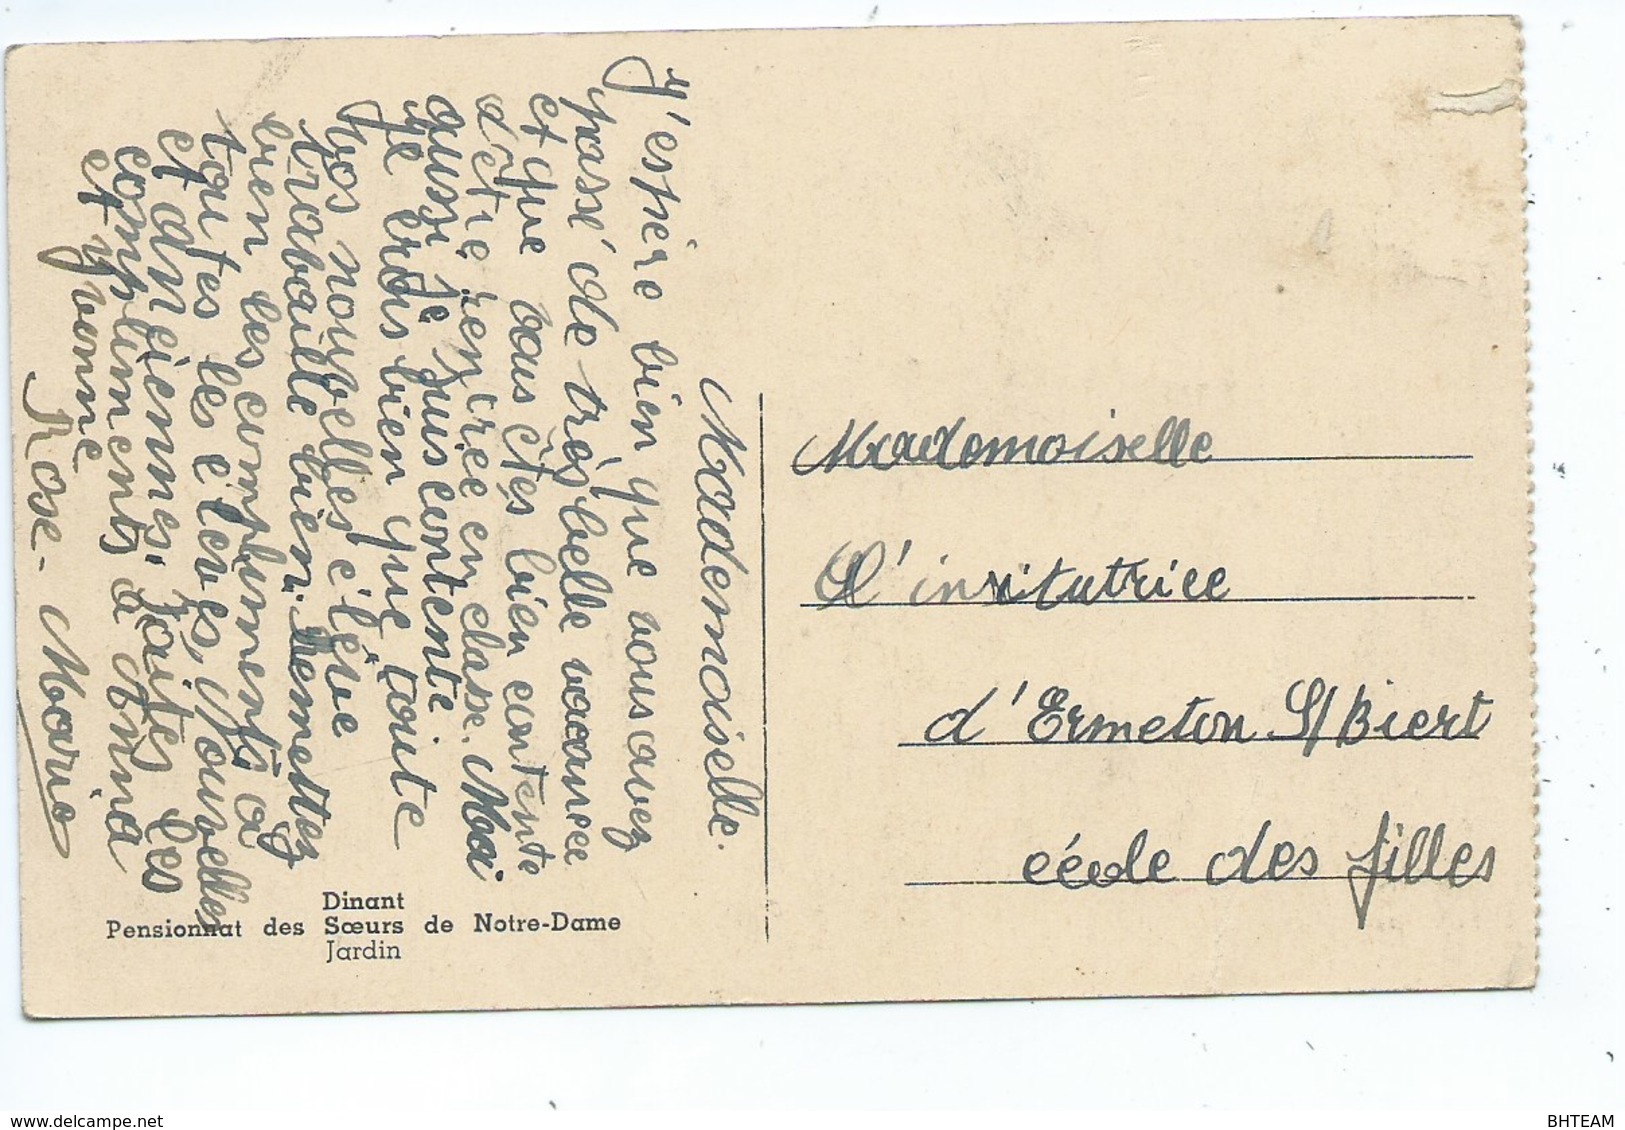 Mademoiselle.
J'espère bien que vous avez
passé de très belle vacance
et que vous êtes bien contente
d'être rentrée en classe. Moi
aussi je suis contente
Je crois bien que toute
vos nouvelles élève
travaille bien. Remettez
bien les compliments à
toutes les élèves, nouvelles
et anciennes. Faites les
compliments à Anna
et Yvonne
Rose-Marie
Mademoiselle
L'institutrice
d'Ermeton S/Biert
école des filles
Dinant
Pensionnat des Sœurs de Notre-Dame
Jardin
BHTEAM